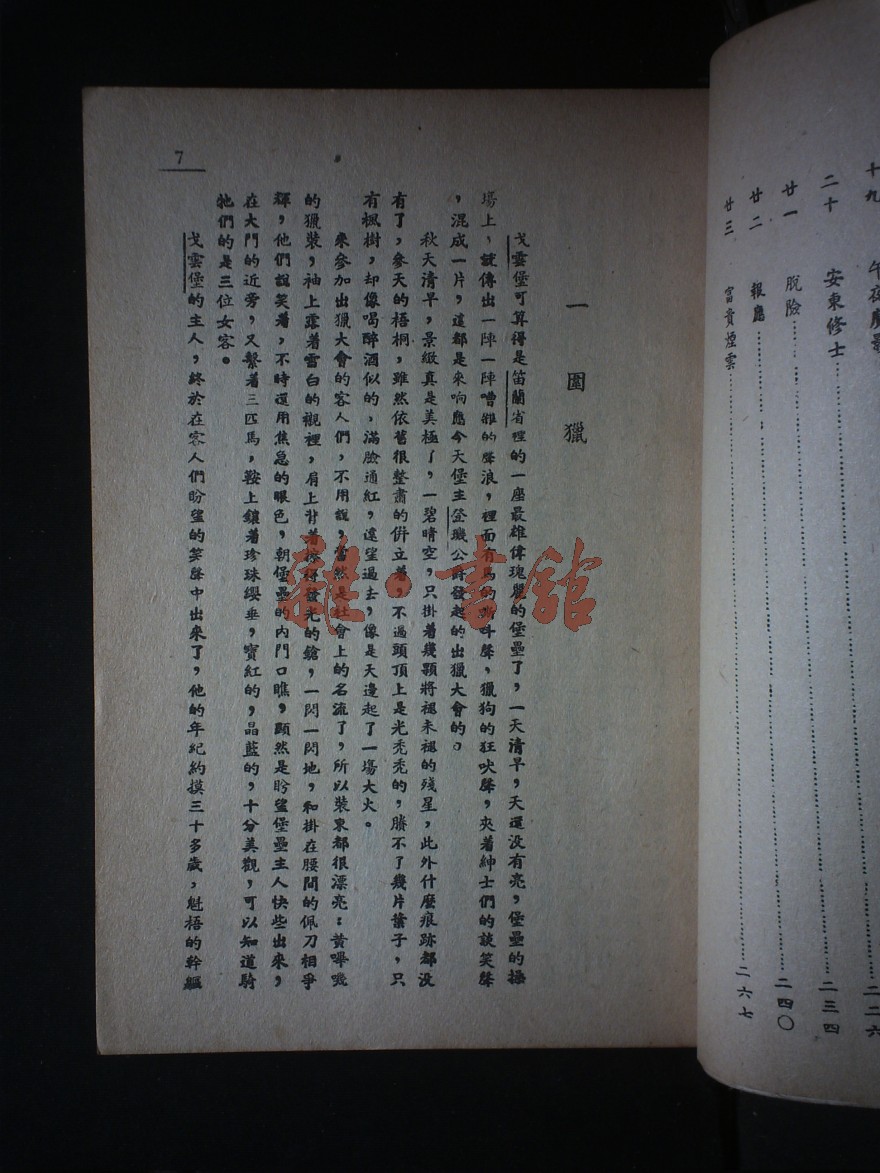 十九 午夜魔影 二二六
二十 安東修士 二三四
廿一 脫險 二四〇
廿二 報應
廿三 富貴煙雲 二六七
一 圍獵
戈雲堡可算得是笛蘭省裡的一座最雄偉瑰麗的堡壘了，一天清早，天還没有亮，堡壘的操
場上，就傳出一陣一陣嘈雜的聲浪，裡面有馬的嘶叫聲，獵狗的狂吠聲，夾着紳士們的談笑聲
，混成一片，這都是來响應今天堡主登職公爵發起的出獵大會的。
秋天清早，景緻真是美極了，一碧晴空，只掛着幾顆將褪未褪的殘星，此外什麼痕跡都没
有了，參天的梧桐，雖然依舊很整肅的倂立着，不過頭頂上是光禿禿的，賸不了幾片葉子，只
有楓樹，却像喝醉酒似的，滿臉通紅，遠望過去，像是天邊起了一場大火。
來參加出獵大會的客人們，不用說，當然是社會上的名流了，所以裝束都很漂亮：黃嗶嘰
的獵裝，袖上露着雪白的襯裡，肩上背着擦得發光的鎗，一閃一閃地，和掛在腰間的佩刀相爭
輝，他們說笑着，不時還用焦急的眼色，朝堡壘的內門口瞧，顯然是盼望堡壘主人快些出來，
在大門的近旁，又繫着三匹馬，鞍上鑲着珍珠纓垂，寶紅的，晶藍的，十分美觀，可以知道騎
牠們的是三位女客。
戈雲堡的主人，終於在客人們盼望的笑聲中出來了，他的年紀約摸三十多歲，魁梧的幹軀
7
雜·書館